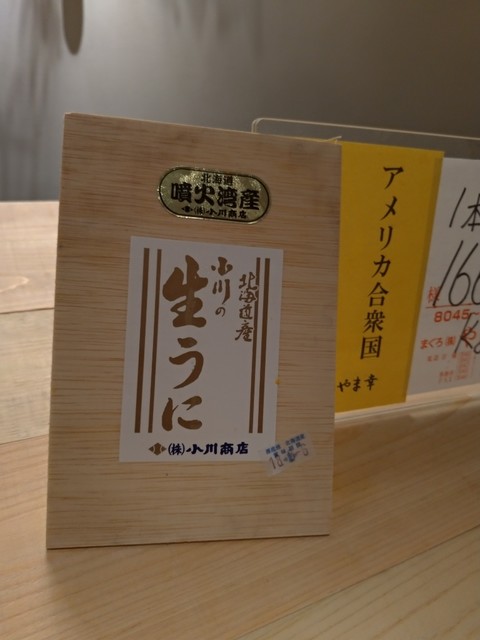 北海道
噴火湾産
(株)小川商店
北海道産
小川の
生うに
(株)小川商店
アメリカ合衆国
やま幸
1本
8045
まぐろ